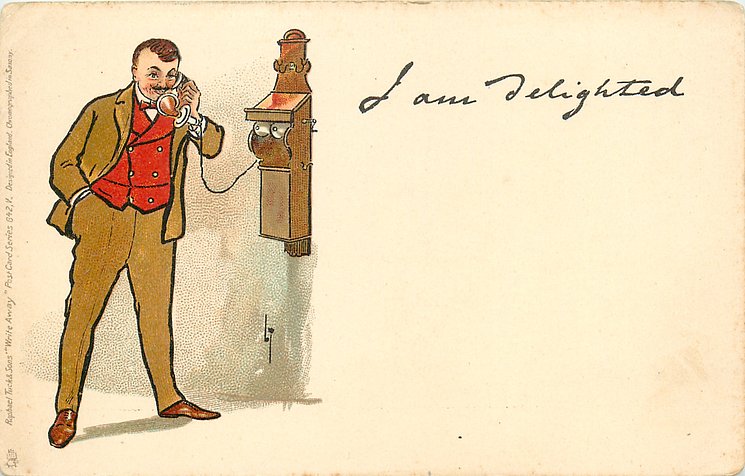 I am delighted
Raphael Tuck & Sons "Write Away" Post Card Series 642.V. Designed in England. Chromographed in Saxony.